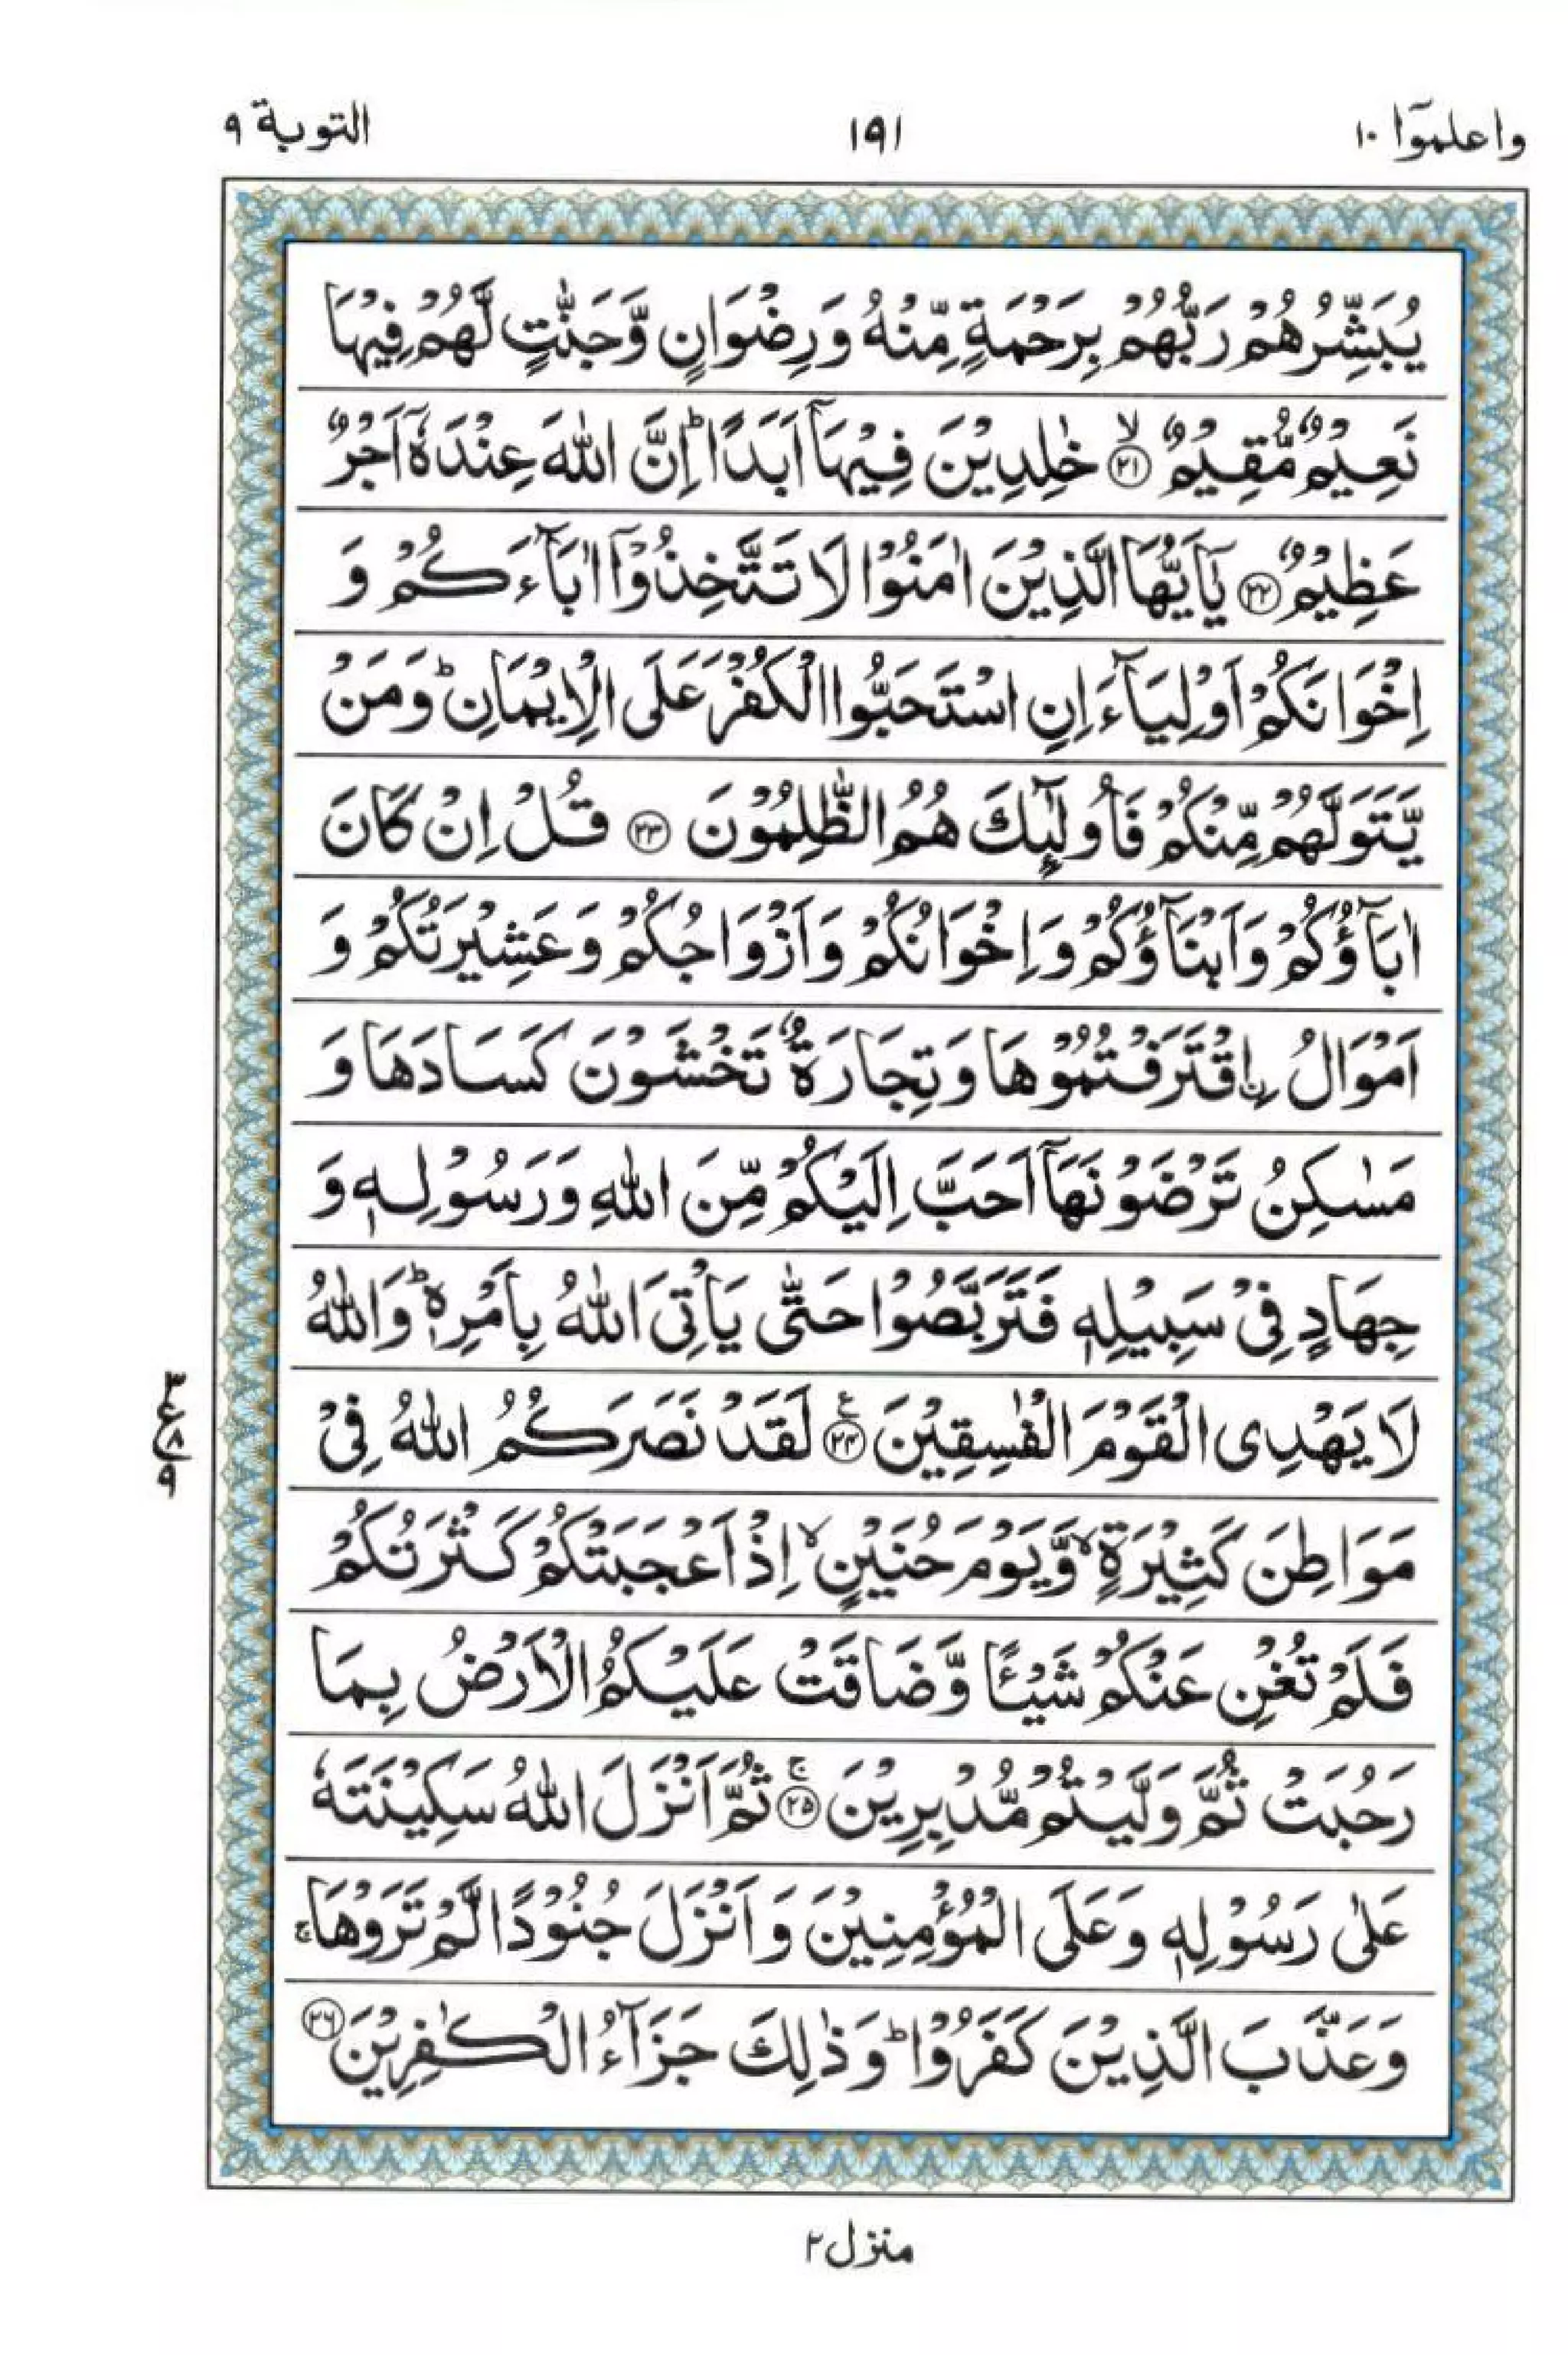 واعلموٓا ١٠
١٩١
التوبة ٩
يُبَشِّرُهُمْ رَبُّهُمْ بِرَحْمَةٍ مِّنْهُ وَرِضْوَانٍ وَّجَنّٰتٍ لَّهُمْ فِيْهَا
نَعِيْمٌ مُّقِيْمٌ ۙ﴿٢١﴾ خٰلِدِيْنَ فِيْهَاۤ اَبَدًا ؕ اِنَّ اللّٰهَ عِنْدَهٗۤ اَجْرٌ
عَظِيْمٌ ﴿٢٢﴾ يٰۤاَيُّهَا الَّذِيْنَ اٰمَنُوْا لَا تَتَّخِذُوْۤا اٰبَآءَكُمْ وَ
اِخْوَانَكُمْ اَوْلِيَآءَ اِنِ اسْتَحَبُّوا الْكُفْرَ عَلَى الْاِيْمَانِ ؕ وَمَنْ
يَّتَوَلَّهُمْ مِّنْكُمْ فَاُولٰٓئِكَ هُمُ الظّٰلِمُوْنَ ﴿٢٣﴾ قُلْ اِنْ كَانَ
اٰبَآؤُكُمْ وَاَبْنَآؤُكُمْ وَاِخْوَانُكُمْ وَاَزْوَاجُكُمْ وَعَشِيْرَتُكُمْ وَ
اَمْوَالُ ۨاقْتَرَفْتُمُوْهَا وَتِجَارَةٌ تَخْشَوْنَ كَسَادَهَا وَ
مَسٰكِنُ تَرْضَوْنَهَاۤ اَحَبَّ اِلَيْكُمْ مِّنَ اللّٰهِ وَرَسُوْلِهٖ وَ
جِهَادٍ فِيْ سَبِيْلِهٖ فَتَرَبَّصُوْا حَتّٰى يَاْتِيَ اللّٰهُ بِاَمْرِهٖ ؕ وَاللّٰهُ
لَا يَهْدِى الْقَوْمَ الْفٰسِقِيْنَ ﴿٢٤﴾ ع لَقَدْ نَصَرَكُمُ اللّٰهُ فِيْ
٣
ع
٨
٩
مَوَاطِنَ كَثِيْرَةٍ ۙ وَّيَوْمَ حُنَيْنٍ ۙ اِذْ اَعْجَبَتْكُمْ كَثْرَتُكُمْ
فَلَمْ تُغْنِ عَنْكُمْ شَيْـًٔا وَّضَاقَتْ عَلَيْكُمُ الْاَرْضُ بِمَا
رَحُبَتْ ثُمَّ وَلَّيْتُمْ مُّدْبِرِيْنَ ۚ﴿٢٥﴾ ثُمَّ اَنْزَلَ اللّٰهُ سَكِيْنَتَهٗ
عَلٰى رَسُوْلِهٖ وَعَلَى الْمُؤْمِنِيْنَ وَاَنْزَلَ جُنُوْدًا لَّمْ تَرَوْهَا ۚ
وَعَذَّبَ الَّذِيْنَ كَفَرُوْا ؕ وَذٰلِكَ جَزَآءُ الْكٰفِرِيْنَ ﴿٢٦﴾
منزل ٢